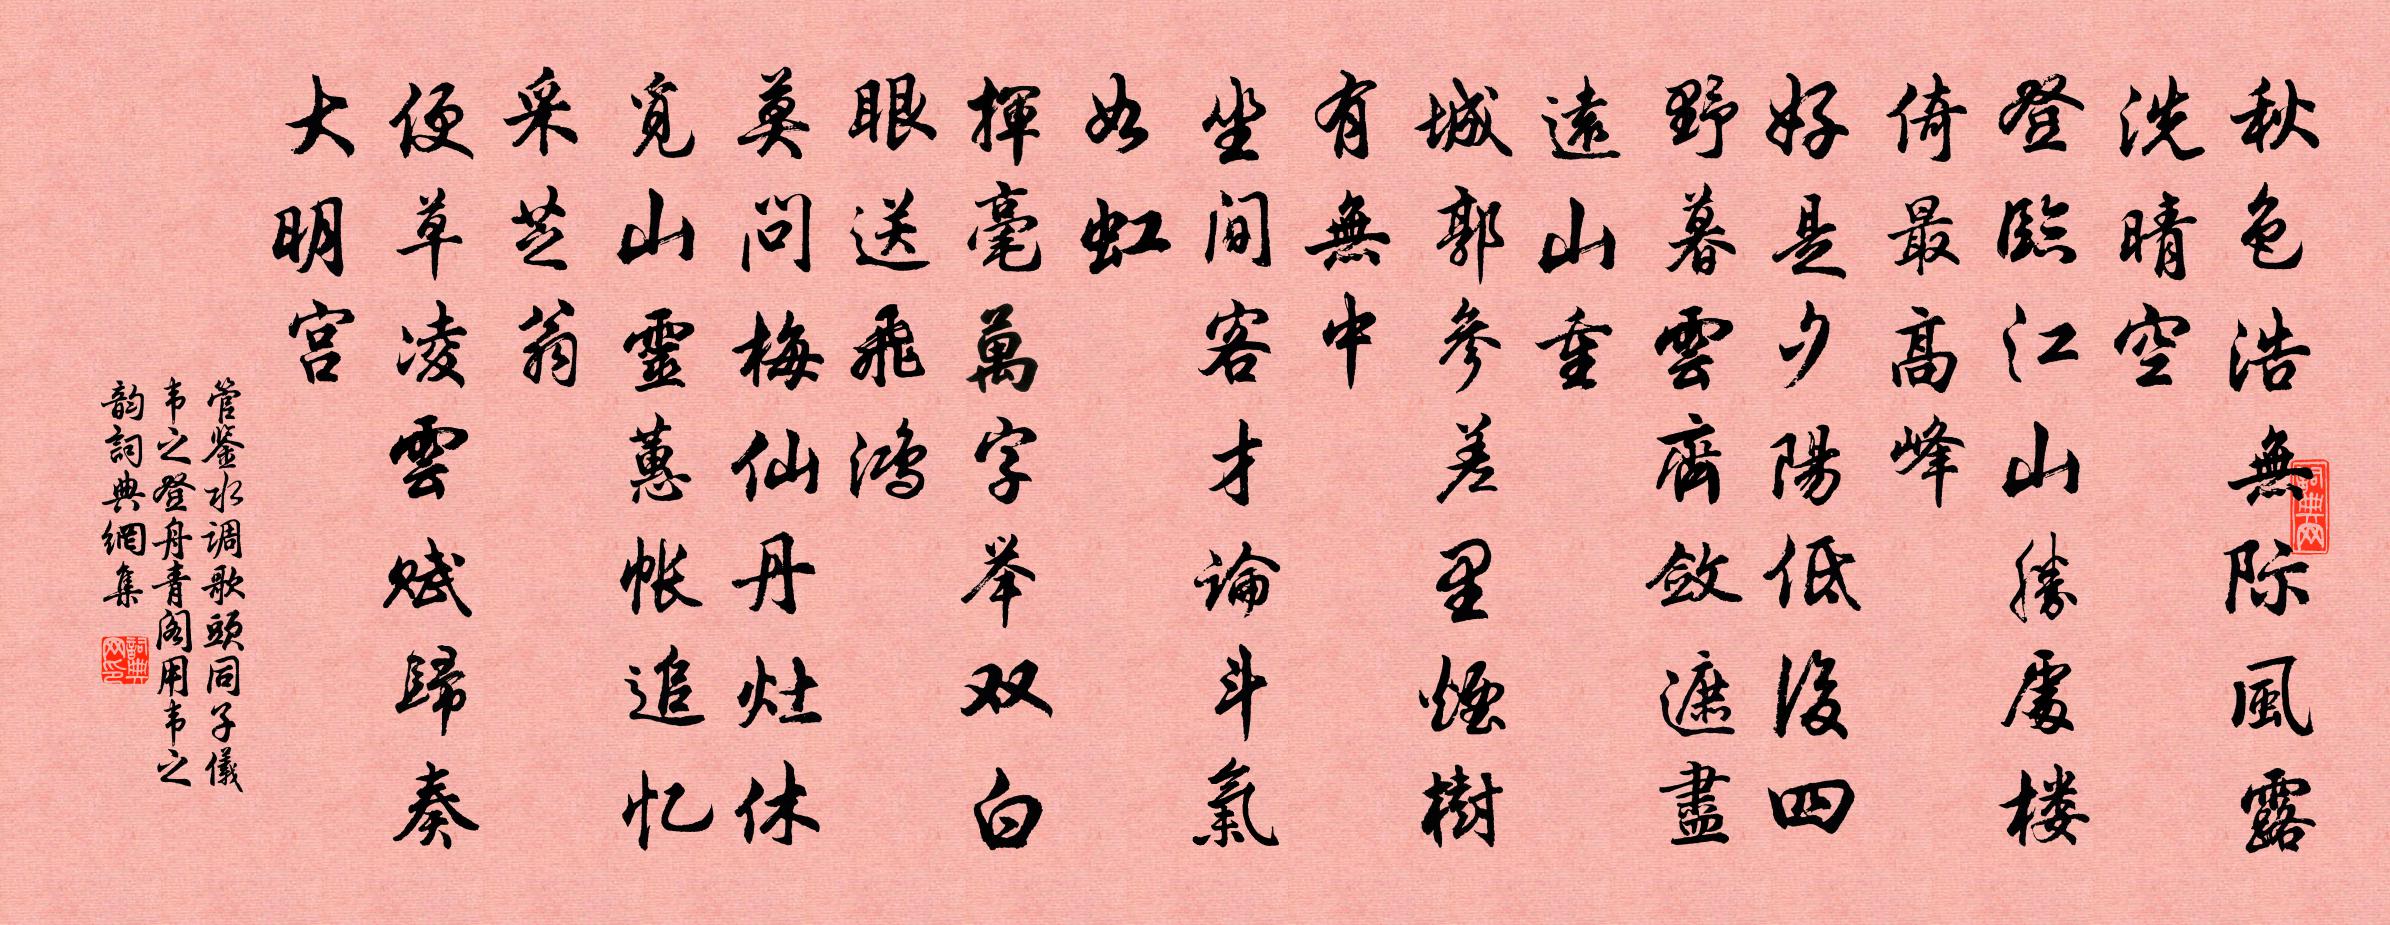 秋色浩無际風露
洗晴空
登臨江山勝處楼
倚最高峰
好是夕陽低後四
野暮雲齊斂遮盡
遠山重
城郭參差里煙樹
有無中
坐间客才論斗氣
如虹
揮毫萬字举双白
眼送飛鸿
莫问梅仙丹灶休
覓山靈蕙帐追忆
采芝翁
便草凌雲赋歸奏
大明宫
管鉴水调歌頭同子儀
韦之登舟青阁用韦之
韵詞典網集
詞典网
詞典网印